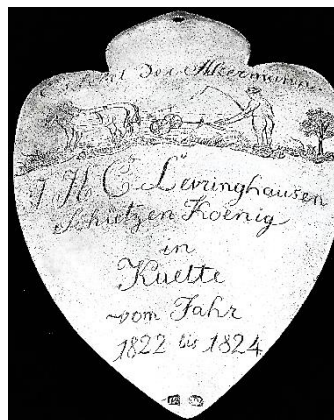 Der Akermann
J H C Levringhausen
Schietzen Koenig
in
Kuette
vom Jahr
1822 bis 1824